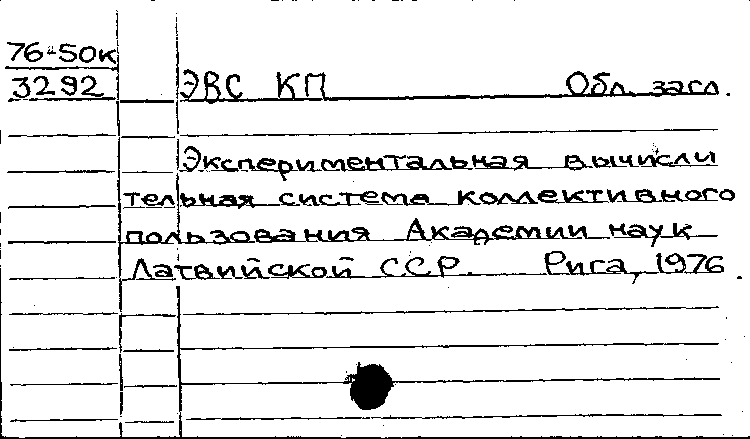 76-50к
3292 ЭВС КП Обл. засл.
Экспериментальная вычисли
тельная система коллективного
пользования Академии наук
Латвийской ССР. Рига, 1976.